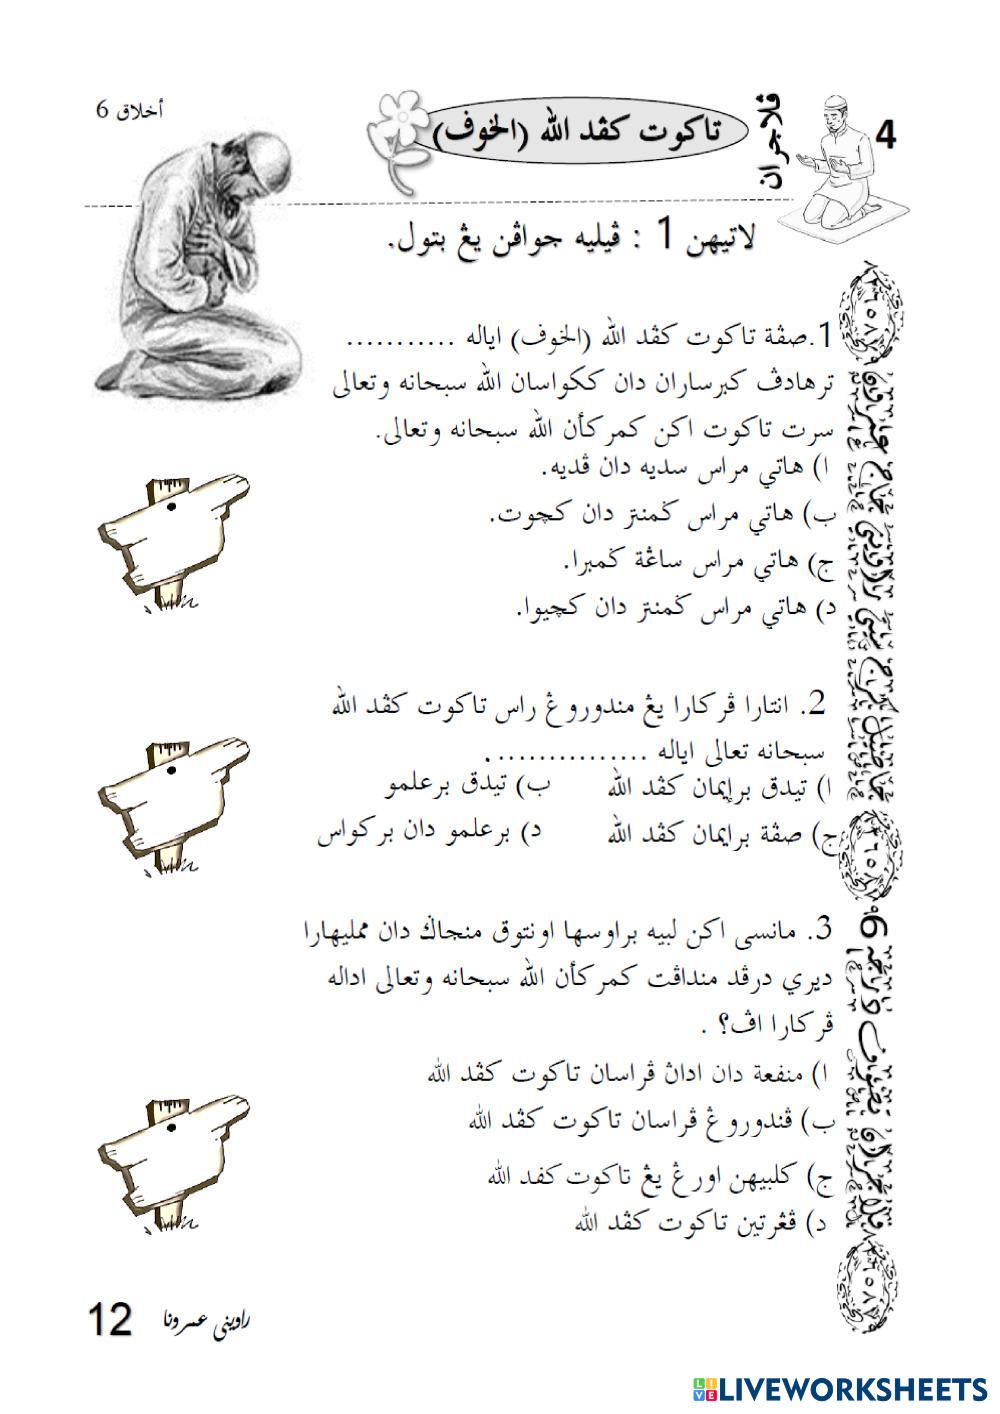 أخلاق 6
تاكوت كڤد الله (الخوف)
ڤلاجران
4
لاتيهن 1 : ڤيليه جواڤن يڠ بتول.
1.صفة تاكوت كڤد الله (الخوف) اياله ...........
ترهادڤ كبرساران دان ككواسان الله سبحانه وتعالى
سرت تاكوت اكن كمركأن الله سبحانه وتعالى.
ا) هاتي مراس سديه دان ڤديه.
ب) هاتي مراس ݢمنتر دان كچوت.
ج) هاتي مراس ساڠة ݢمبرا.
د) هاتي مراس ݢمنتر دان كچيوا.
2. انتارا ڤركارا يڠ مندوروڠ راس تاكوت كڤد الله
سبحانه تعالى اياله ................
ا) تيدق برإيمان كڤد الله ب) تيدق برعلمو
ج) صفة برايمان كڤد الله د) برعلمو دان بركواس
3. مانسى اكن لبيه براوسها اونتوق منجاݢ دان ممليهارا
ديري درڤد منداڤت كمركأن الله سبحانه وتعالى اداله
ڤركارا اڤ؟ .
ا) منفعة دان ادان ڤراسان تاكوت كڤد الله
ب) ڤندوروڠ ڤراسان تاكوت كڤد الله
ج) كلبيهن اورڠ يڠ تاكوت كفد الله
د) ڤڠرتين تاكوت كڤد الله
12
راويني عسرونا
LIVEWORKSHEETS